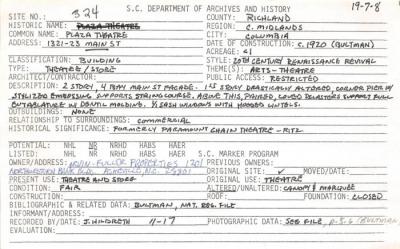 S.C. DEPARTMENT OF ARCHIVES AND HISTORY 19-7-8
SITE NO.: 324
HISTORIC NAME: PLAZA THEATRE
COMMON NAME: PLAZA THEATRE
ADDRESS: 1321-23 MAIN ST
COUNTY: RICHLAND
REGION: C. MIDLANDS
CITY: COLUMBIA
DATE OF CONSTRUCTION: C. 1920 (BULTMAN)
ACREAGE: <1
CLASSIFICATION: BUILDING
TYPE: THEATRE / STORE
ARCHITECT/CONTRACTOR:
STYLE: 20TH CENTURY RENAISSANCE REVIVAL
THEME(S): ARTS - THEATRE
PUBLIC ACCESS: RESTRICTED
DESCRIPTION: 2 STORY, 4 BAY MAIN FACADE. 1ST STORY DRASTICALLY ALTERED, CORNER PIER W/
STYLIZED EMBOSSING SUPPORTS STRINGCOURSE. ABOVE THIS, PAIRED, PILASTERS SUPPORT FULL
ENTABLATURE W/ DENTIL MOLDING. 1/1 SASH WINDOWS WITH HOODED LINTELS.
OUTBUILDINGS: NONE
RELATIONSHIP TO SURROUNDINGS: COMMERCIAL
HISTORICAL SIGNIFICANCE: FORMERLY PARAMOUNT CHAIN THEATRE - RITZ
POTENTIAL: NHL NR NRHD HABS HAER
LISTED: NHL NR NRHD HABS HAER S.C. MARKER PROGRAM
OWNER/ADDRESS: FULLER PROPERTIES 1201 PREVIOUS OWNERS:
NORTHWESTERN BANK BLDG. ASHEVILLE, N.C. 28801 ORIGINAL SITE: ✓ MOVED/DATE:
PRESENT USE: THEATRE AND STORE ORIGINAL USE: THEATRE
CONDITION: FAIR ALTERED/UNALTERED: CANOPY & MARQUEE
CONSTRUCTION: ROOF: FOUNDATION: CLOSED
BIBLIOGRAPHIC & RELATED DATA: BULTMAN, NAT. REG. FILE
INFORMANT/ADDRESS:
RECORDED BY/DATE: J. HINDRETH 11-17 PHOTOGRAPHIC DATA: SEE FILE, (BULTMAN)
EVALUATION: